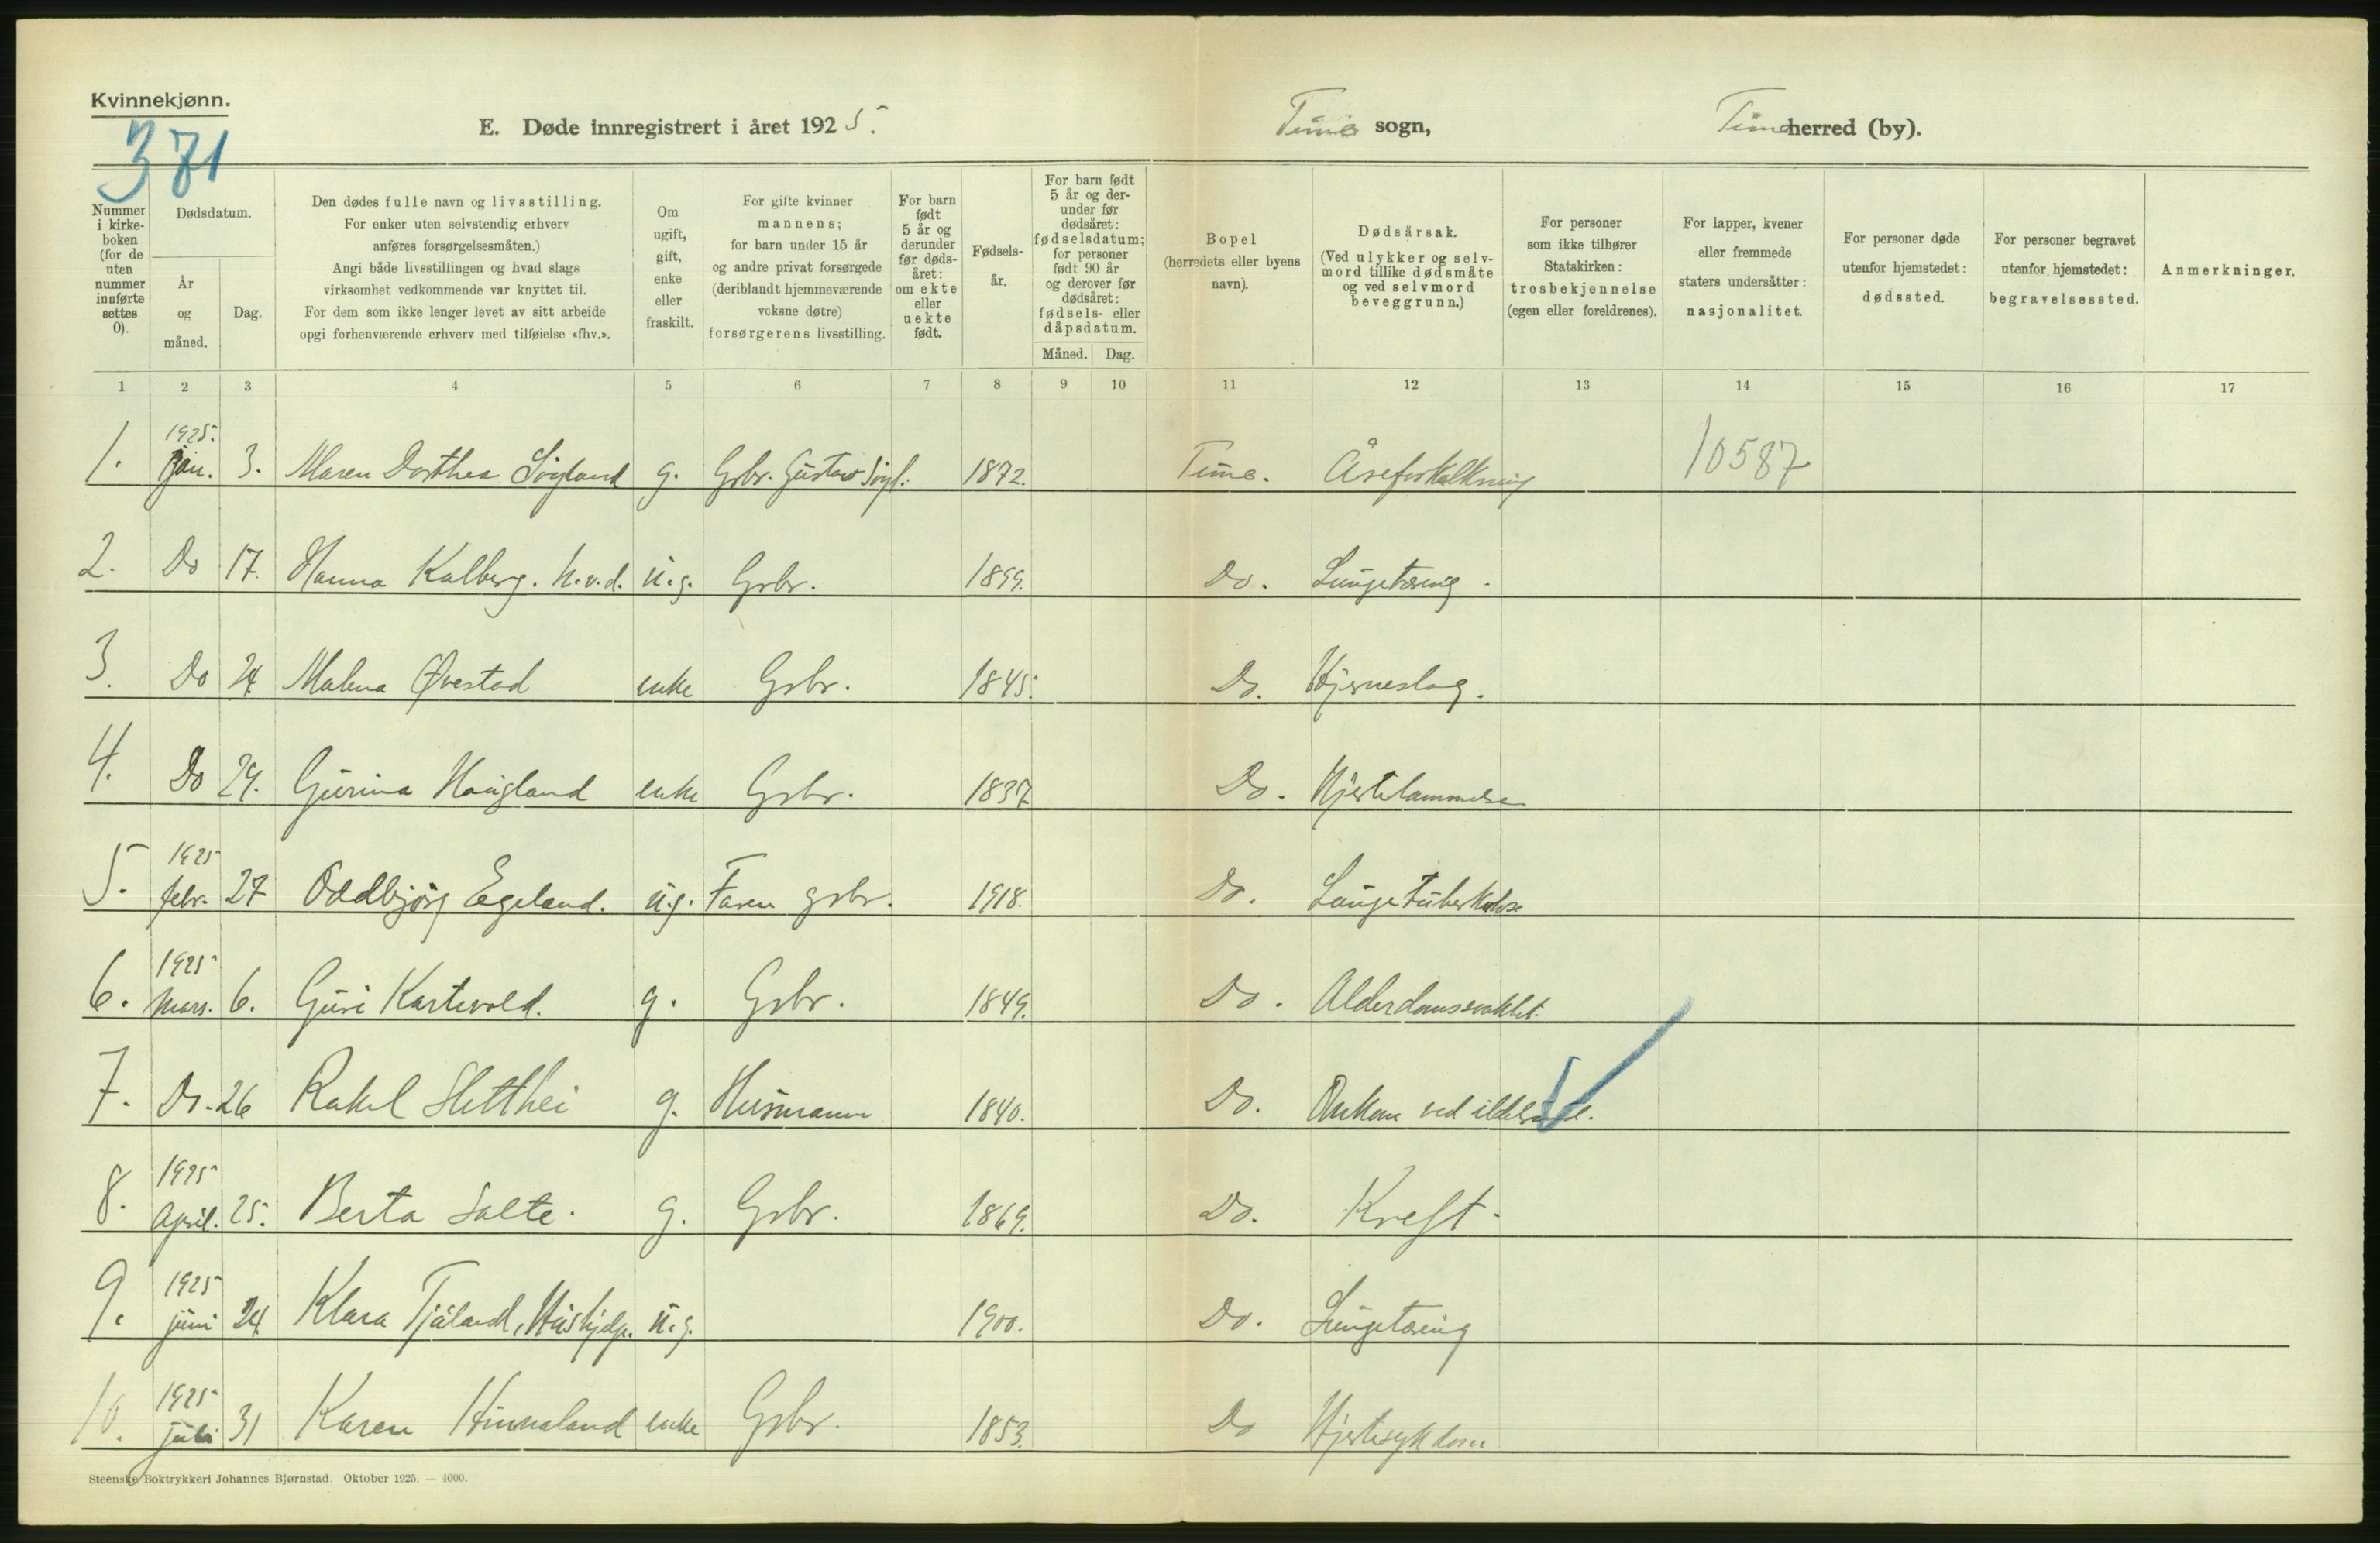 Kvinnekjønn.
371
E. Døde innregistrert i året 1925. Time sogn, Time herred (by).
Nummer i kirkeboken (for de uten nummer innførte settes 0).
Dødsdatum.
År og måned.
Dag.
Den dødes fulle navn og livsstilling.
For enker uten selvstendig erhverv
anføres forsørgelsesmåten.)
Angi både livsstillingen og hvad slags
virksomhet vedkommende var knyttet til.
For dem som ikke lenger levet av sitt arbeide
opgi forhenværende erhverv med tilføielse «fhv.».
Om ugift, gift, enke eller fraskilt.
For gifte kvinner
mannens;
for barn under 15 år
og andre privat forsørgede
(deriblandt hjemmeværende
voksne døtre)
forsørgerens livsstilling.
For barn født 5 år og derunder før dødsåret: om ekte eller uekte født.
Fødselsår.
For barn født 5 år og derunder før dødsåret: fødselsdatum; for personer født 90 år og derover før dødsåret: fødsels- eller dåpsdatum.
Måned. Dag.
Bopel (herredets eller byens navn).
Dødsårsak.
(Ved ulykker og selvmord tillike dødsmåte og ved selvmord beveggrunn.)
For personer som ikke tilhører Statskirken: trosbekjennelse (egen eller foreldrenes).
For lapper, kvener eller fremmede staters undersåtter: nasjonalitet.
For personer døde utenfor hjemstedet: dødssted.
For personer begravet utenfor hjemstedet: begravelsessted.
Anmerkninger.
1 2 3 4 5 6 7 8 9 10 11 12 13 14 15 16 17
1. 1925. Jan. 3. Maren Dorthea Søyland g. Grbr. Gustav Søyl. 1872. Time. Åreforkalkning 10587
2. Do 17. Hanna Kalberg. h.v.d. u.g. Grbr. 1899. Do. Lungetæring.
3. Do 24 Malena Øvestad enke Grbr. 1845. Do. Hjerneslag.
4. Do 29. Gurina Haugland enke Grbr. 1837 Do. Hjertelammelse
5. 1925 febr. 27 Oddbjørg Egeland. u.g. Faren grbr. 1918. Do. Lungetuberkulose
6. 1925 mars. 6. Guri Kartevold. g. Grbr. 1849. Do. Alderdomssvakhet.
7. Do. 26 Rakel Sletthei g. Husmann 1840. Do. Omkom ved ildebrand.
8. 1925 April. 25. Berta Salte. g. Grbr. 1869. Do. Kreft.
9. 1925 juni 24 Klara Tjåland, Hushjelp. u.g. 1900. Do. Lungetæring
10. 1925 juli 31 Karen Hinnaland enke Grbr. 1853. Do Hjertesykdom
Steenske Boktrykkeri Johannes Bjørnstad. Oktober 1925. — 4000.